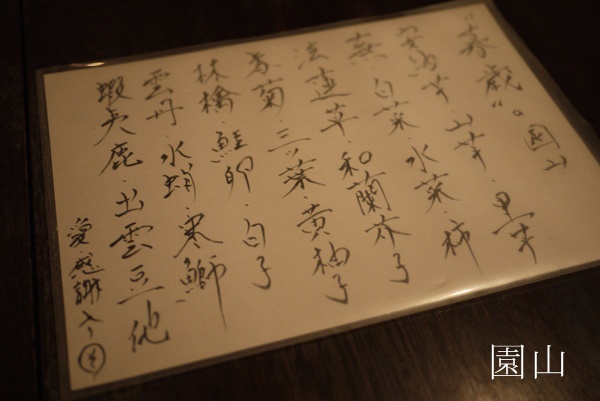 "春戯"。園山
安納芋・山芋・黒芋
蕪・白菜・水菜・柿
法蓮草・和蘭芥子
春菊・三ツ葉・黄柚子
林檎・鮭卵・白子
雲丹・水蛸・寒鰤
蝦夷鹿・出雲豆他
愛感謝入り
園山